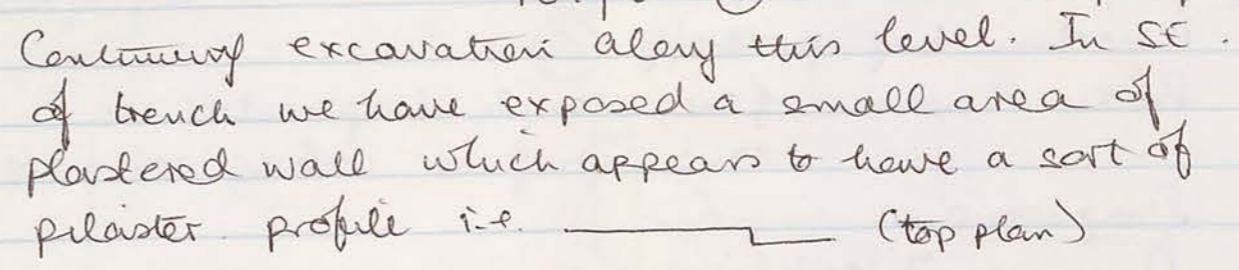 Continuing excavation along this level. In SE.
of trench we have exposed a small area of
plastered wall which appears to have a sort of
pilaster profile i.e. (top plan)